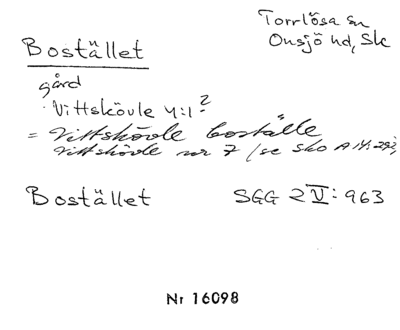 Torrlösa sn
Bostället
Onsjö hd, Sk
gård
Vittskövle 4:1?
= Vittskövle boställe
Vittskövle nr 7 (se sko A 14:292,
Bostället SGG 2 V: 963
Nr 16098